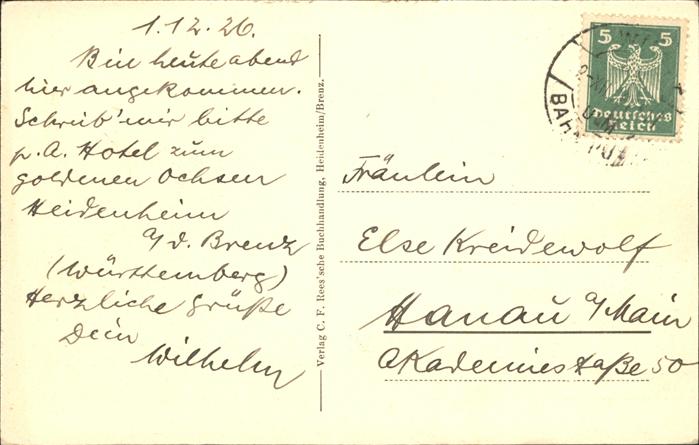 1.12.26.
Bin heute abend
hier angekommen.
Schreib' mir bitte
p.A. Hotel zum
goldenen Ochsen
Heidenheim
a/d. Brenz
(Württemberg)
Herzliche Grüße
Dein
Wilhelm
Verlag C. F. Rees'sche Buchhandlung, Heidenheim/Brenz.
5 5
Deutsches
Reich
BAHN
Fräulein
Else Kreidewolf
Hanau a/Main
Akademiestraße 50